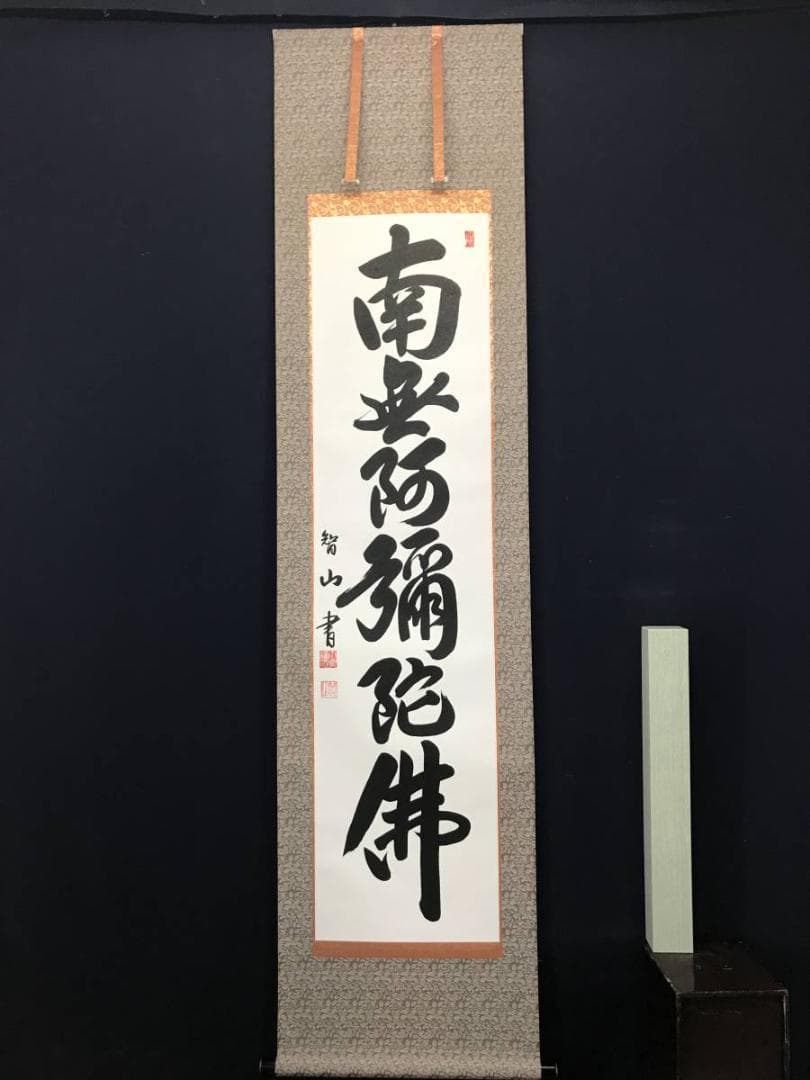 南無阿彌陀佛
智山書